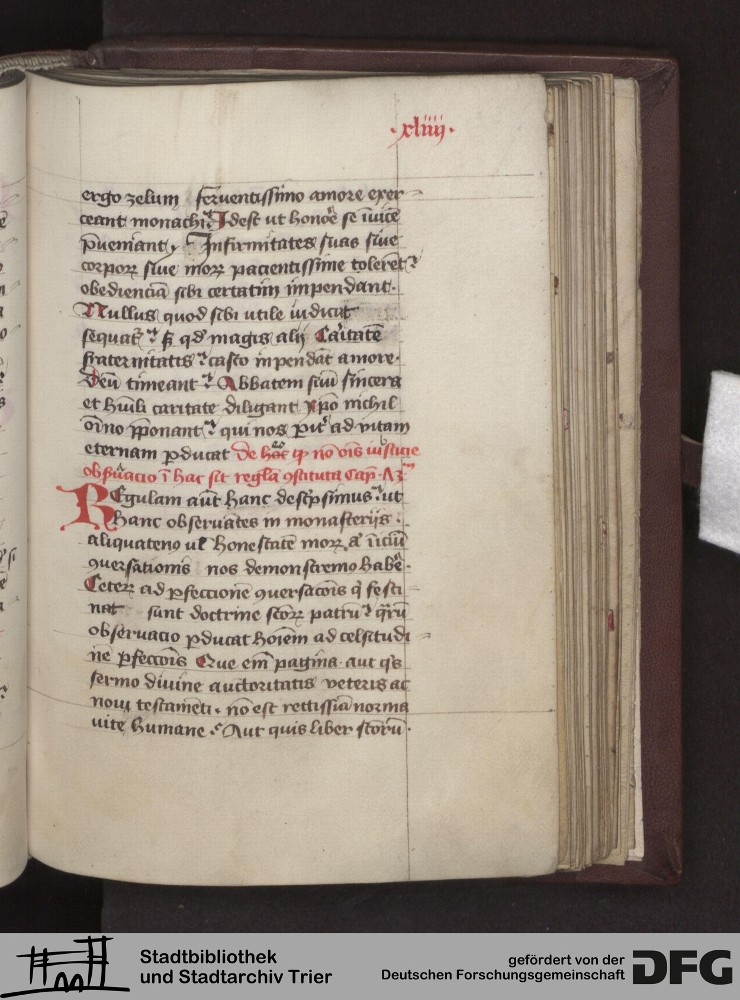 ·xliiij·
ergo zelum feruentissimo amore exer
ceant monachi Idest ut honoẽ se ĩuicẽ
p̃ueniant, Infirmitates suas siue
corporꝝ siue morꝝ pacientissime tolerẽt
obedienciã sibi certatim impendant·
Nullus quod sibi utile iudicat
sequat᷑ ⁊ sꝫ qd̃ magis alij Caritatẽ
fraternitatis ⁊ casto inpendãt amore·
Deũ timeant ⁊ Abbatem suũ sincera
et hũili caritate diligant xp̃o nichil
oĩno p̃ponant ⁊ qui nos pit᷑ ad vitam
eternam ꝑducat de hoc ꝙ nõ oĩs iusticie
obẜuacio ĩ hac sit regla ꝯstituta Cap̃·
REgulam aũt hanc desc̃psimus· ut
hanc obseruãtes in monasterijs·
aliquatenꝰ ul̃ honestatẽ morꝝ aut ĩiciũ
ꝯuersationis nos demonstremꝰ habẽ·
Ceterꝝ ad ꝑfeccionẽ ꝯuersacõis q̃ festi
nat sunt doctrine sc̃orꝝ patrũ ⁊ q̃rũ
obseruacio ꝑducat hoĩem ad celsitudi
ne ꝑfecc̃ois Que em̃ pagina· aut q̃s
sermo diuine auctoritatis veteris ac
noui testamẽti· nõ est rectissĩa norma
uite humane· Aut quis liber sc̃orũ·
Stadtbibliothek
und Stadtarchiv Trier
gefördert von der
Deutschen Forschungsgemeinschaft
DFG